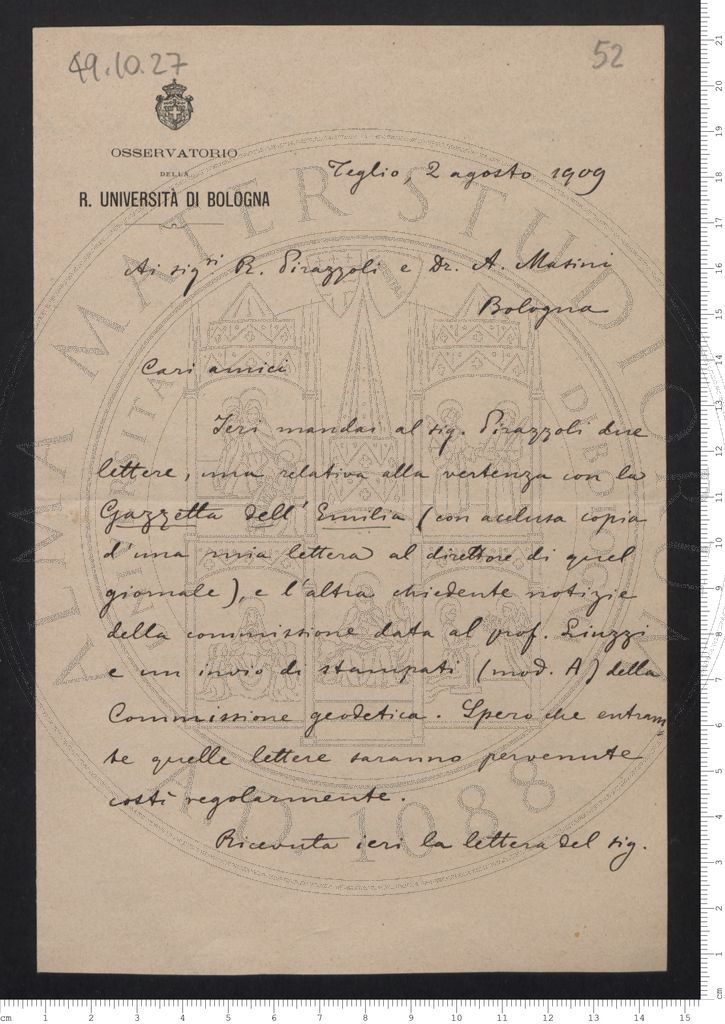 49.10.27
52
OSSERVATORIO
DELLA
R. UNIVERSITÀ DI BOLOGNA
Teglio, 2 agosto 1909
Ai sigri R. Pirazzoli e Dr. A. Masini
Bologna
Cari amici
Ieri mandai al sig. Pirazzoli due
lettere, una relativa alla vertenza con la
Gazzetta dell'Emilia (con acclusa copia
d'una mia lettera al direttore di quel
giornale), e l'altra chiedente notizie
della commissione data al prof. Liuzzi
e un invio di stampati (mod. A) della
Commissione geodetica. Spero che entram=
be quelle lettere saranno pervenute
costì regolarmente.
Ricevuta ieri la lettera del sig.
ALMA MATER STUDIORUM
A.D. 1088